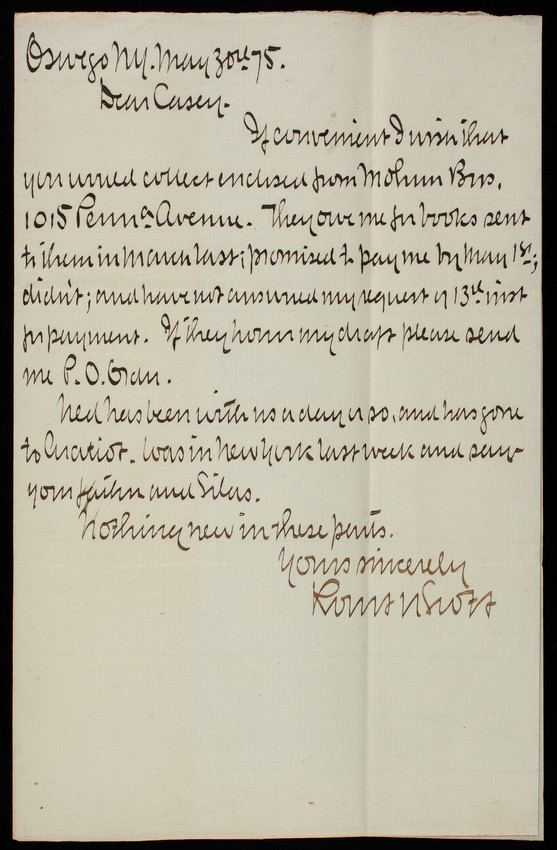 Oswego NY. May 30th 75.
Dear Casey.
If convenient I wish that
you would collect enclosed from Mohun Bros.
1015 Penna Avenue. They owe me for books sent
to them in March last; promised to pay me by May 1st;
didn't; and have not answered my request of 13th inst
for payment. If they honor my draft please send
me P. O. Order.
Ned has been with us a day or so, and has gone
to Gratiot. Was in New York last week and saw
your father and Silas.
Nothing new in these parts.
Yours sincerely
Robt N Scott